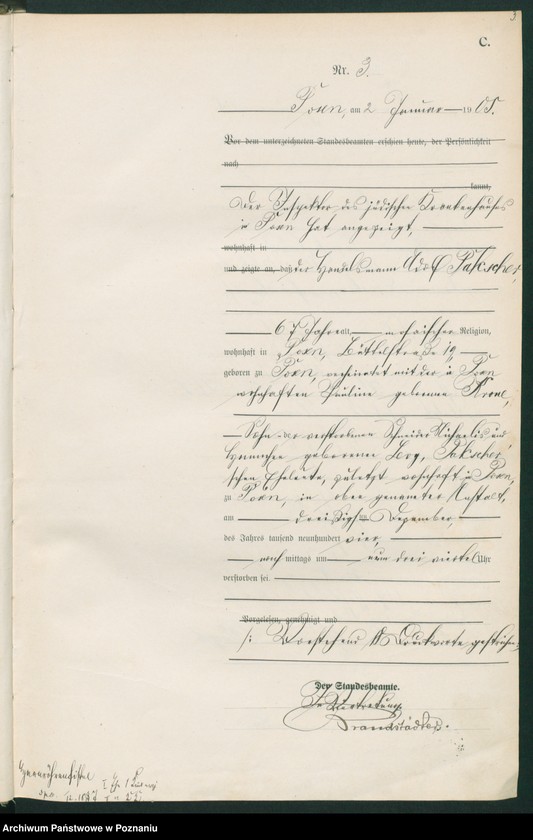 3
C.
Nr. 3.
Posen, am 2 Januar 1905.
Vor dem unterzeichneten Standesbeamten erschien heute, der Persönlichkeit
nach
kannt,
Der Inspektor des jüdischen Krankenhauses
in Posen hat angezeigt,
wohnhaft in
und zeigte an, daß der Handelsmann Adolf Pakscher,
67 Jahre alt, mosaischer Religion,
wohnhaft in Posen, Büttelstraße 19
geboren zu Posen, verheiratet mit der in Posen
wohnhaften Pauline geborenen Krone,
Sohn der verstorbenen Schneider Michaelis und
geborenen Levy, Pakscher
schen Eheleute, zuletzt wohnhaft in Posen,
zu Posen, in oben genannter Anstalt,
am dreißigsten Dezember,
des Jahres tausend neunhundert vier,
nach mittags um drei viertel Uhr
verstorben sei.
Vorgelesen, genehmigt und
/: Vorstehend Druckworte gestrichen
Der Standesbeamte.
In Vertretung
Brandstädter.
Archiwum Państwowe w Poznaniu